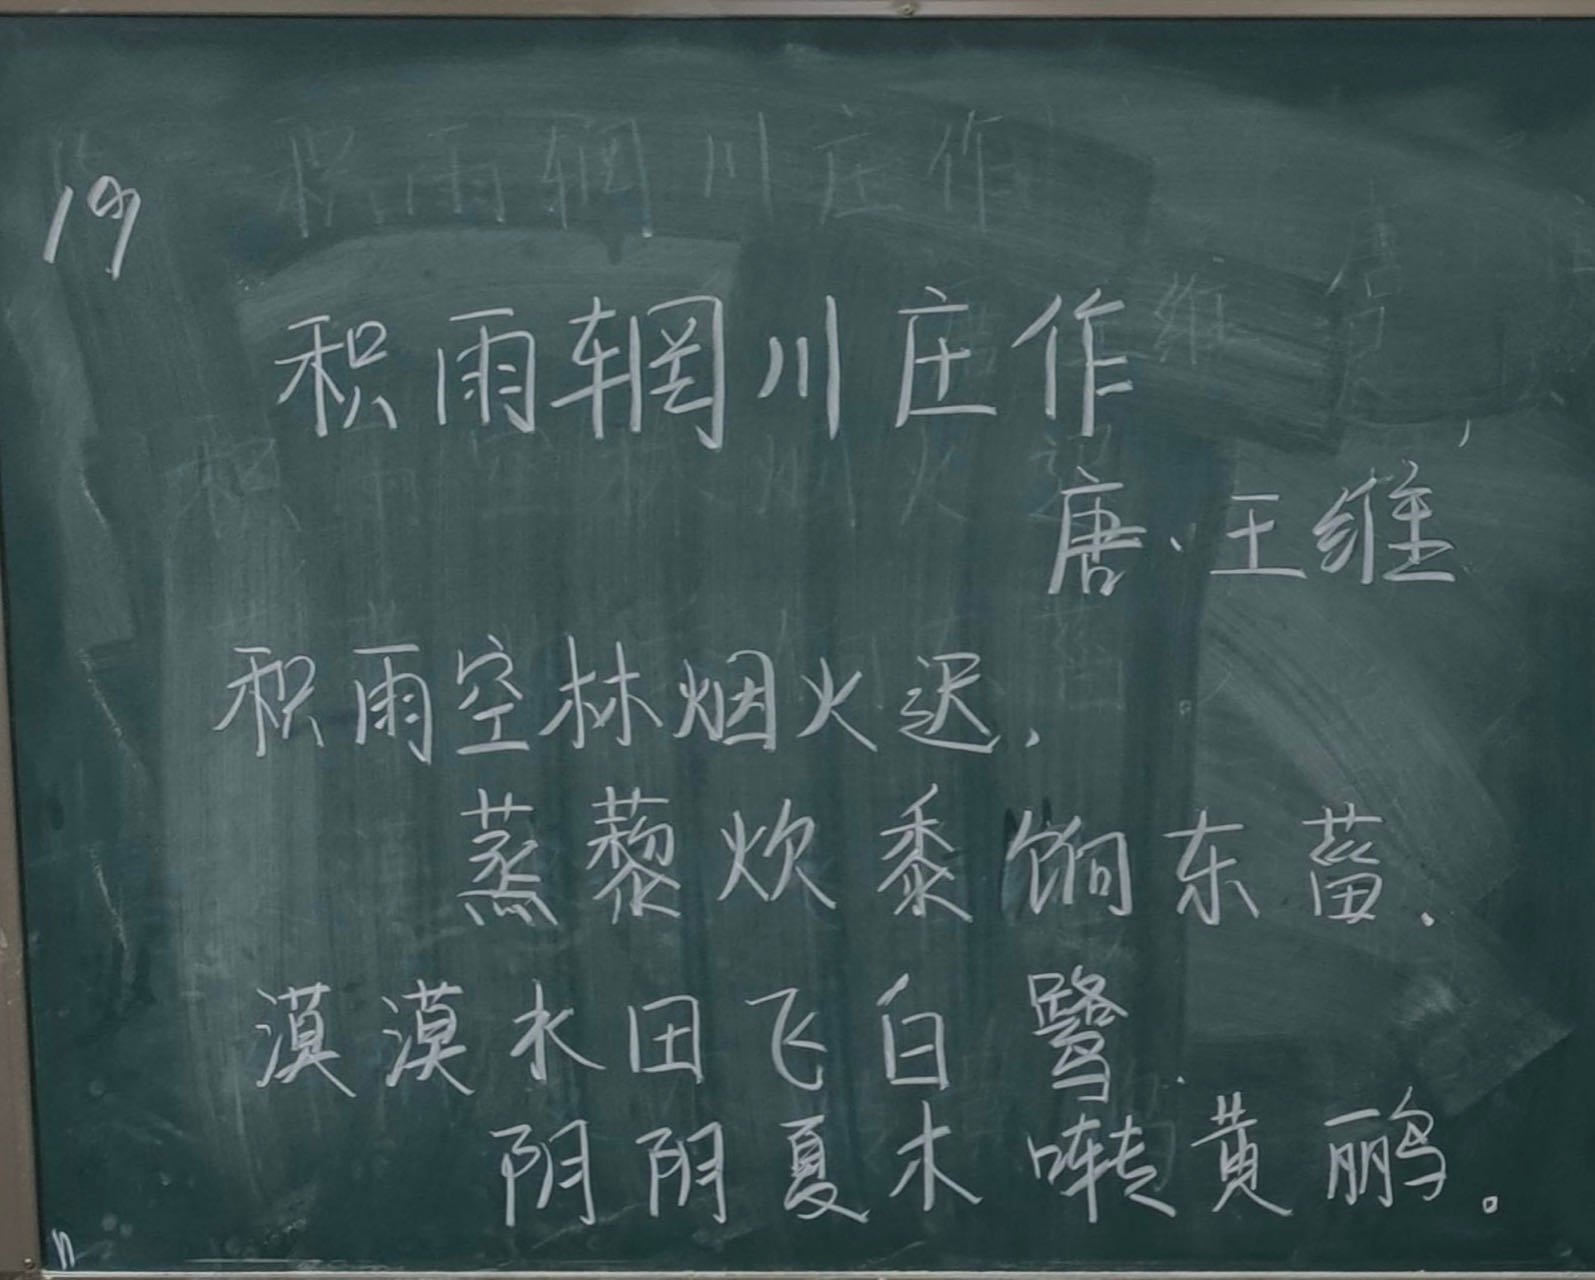 19
积雨辋川庄作
唐、王维
积雨空林烟火迟,
蒸藜炊黍饷东菑.
漠漠水田飞白鹭
阴阴夏木啭黄鹂。